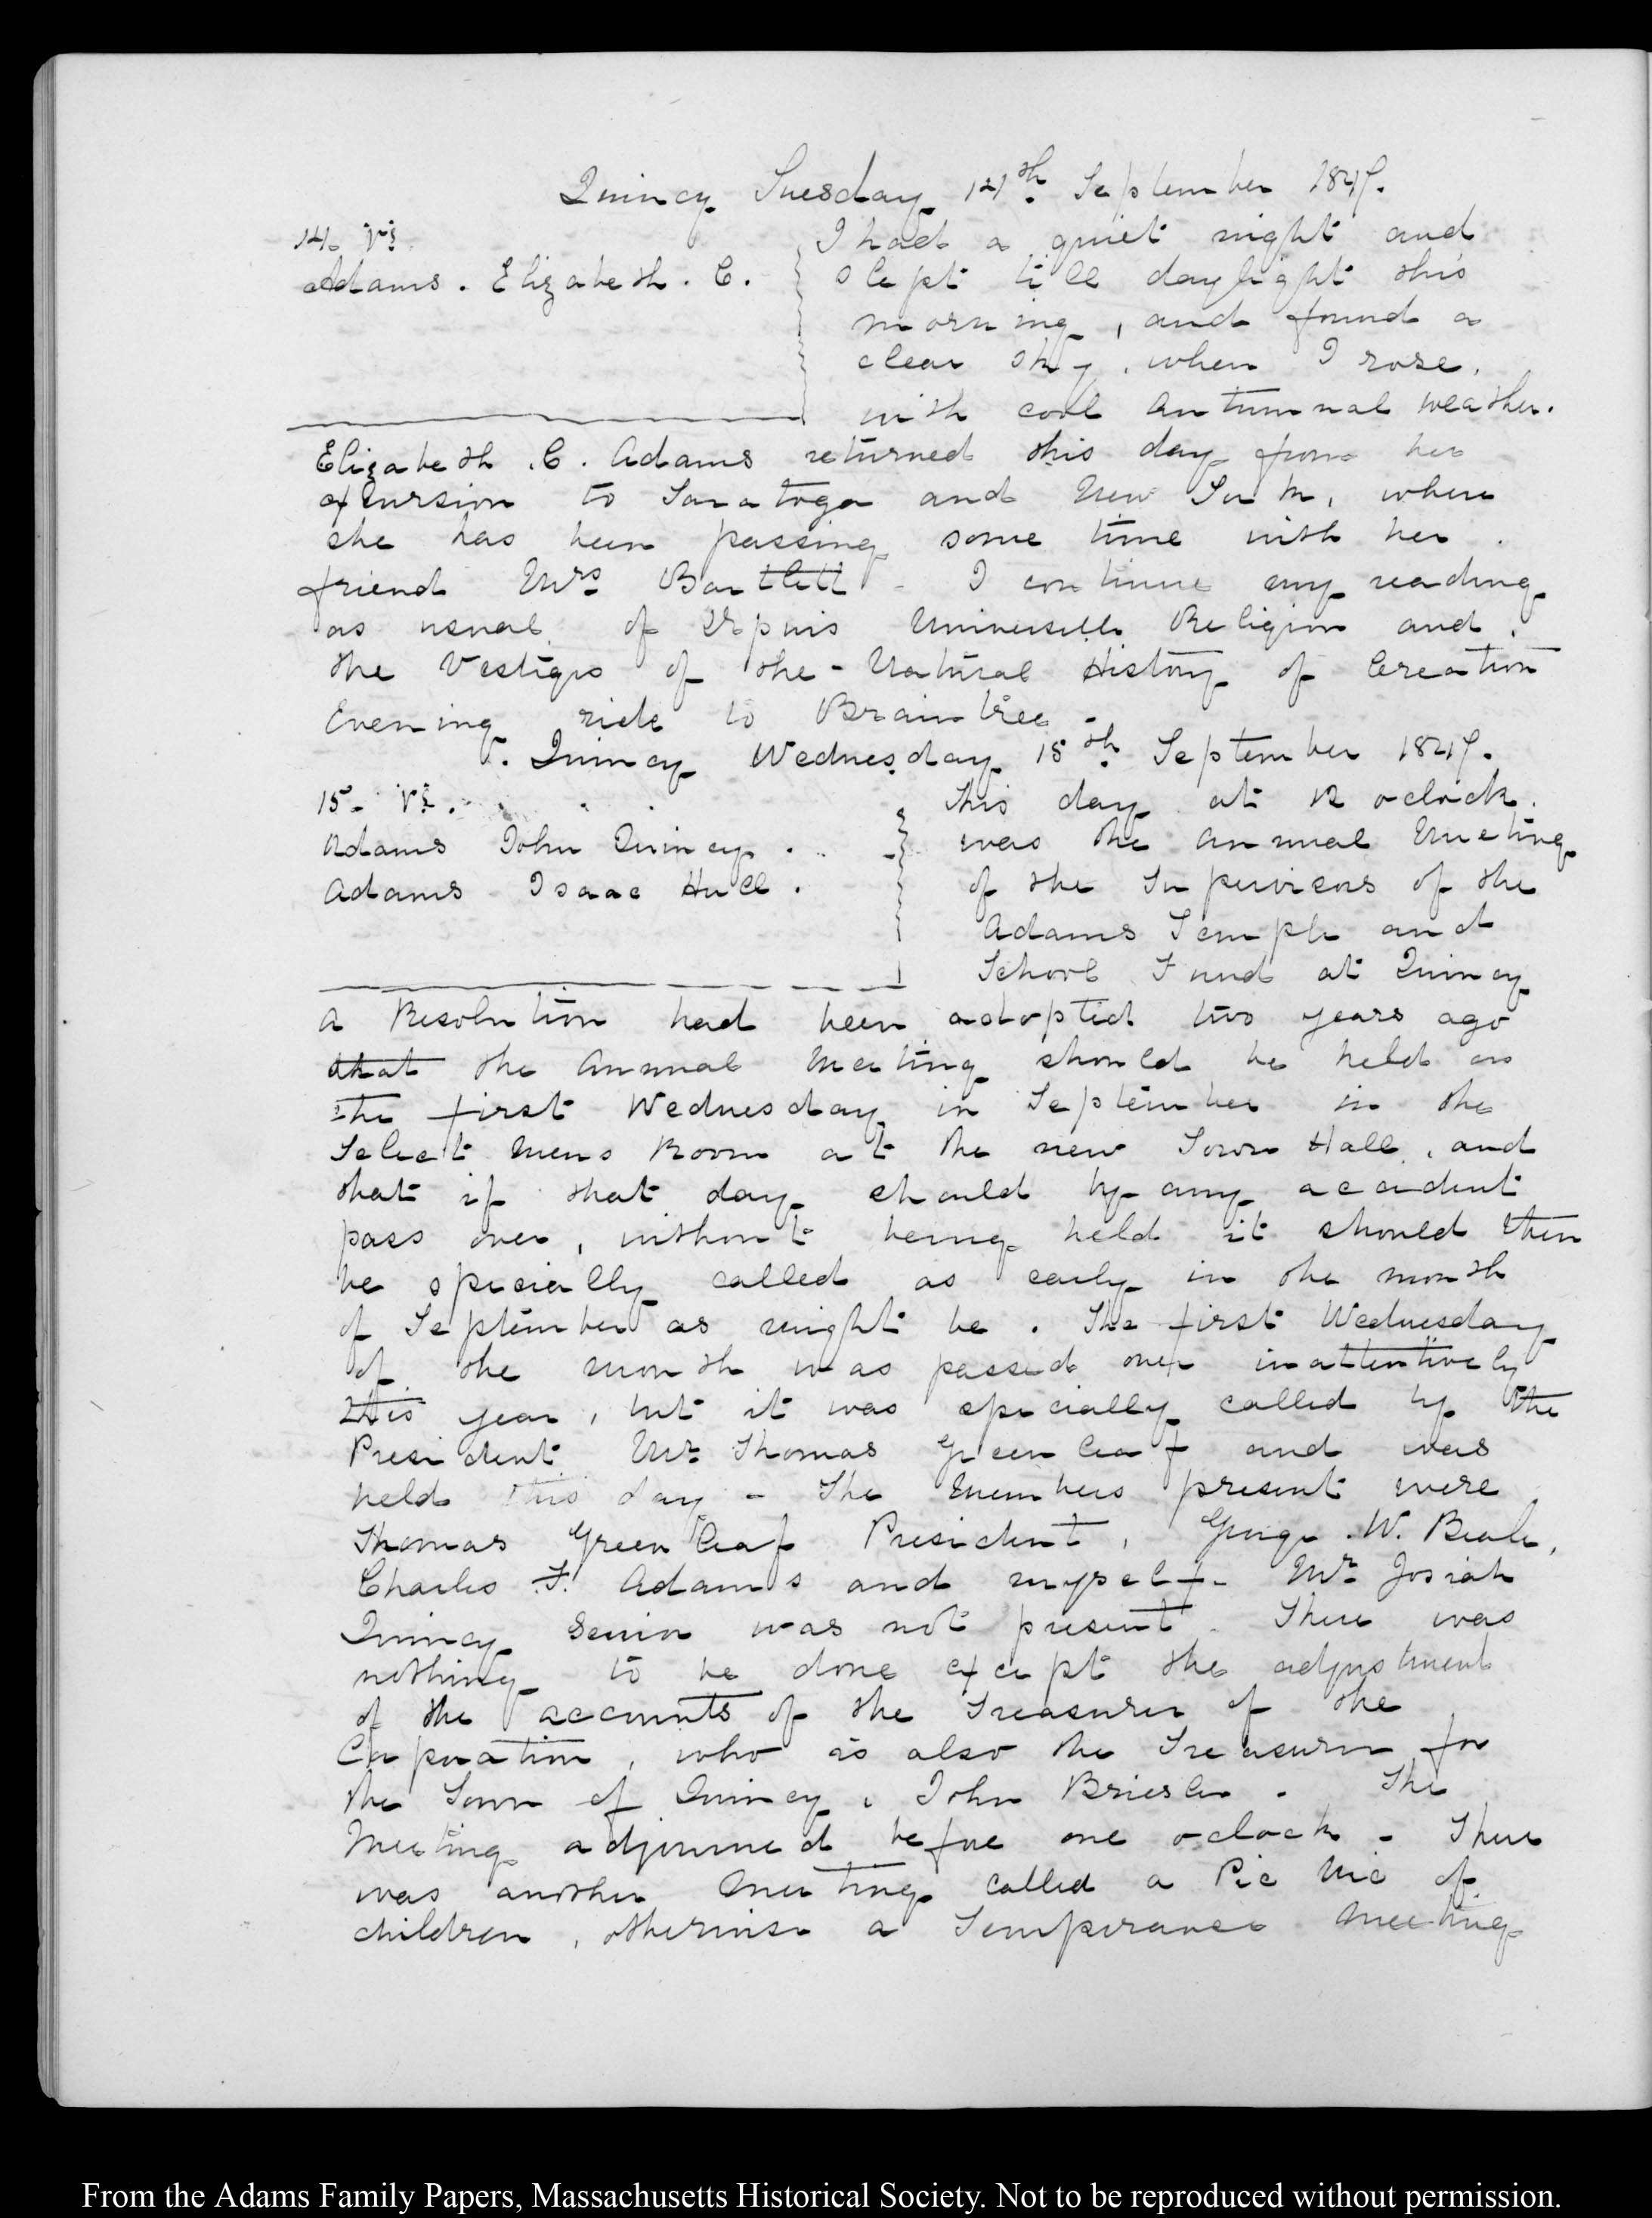 Quincy Tuesday 14th. September 1847.
14. V:
Adams. Elizabeth. C.
I had a quiet night and
slept till daylight this
morning, and found a
clear sky, when I rose,
with cool autumnal weather.
Elizabeth. C. Adams returned this day from her
excursion to Saratoga and New York, where
she has been passing some time with her
friend Mrs Bartlett - I continue my reading
as usual, of Dupuis Universelle Religion and
the Vestiges of the Natural History of Creation
Evening ride to Braintree -
Quincy Wednesday 15th. September 1847.
15. V:
Adams John Quincy.
Adams Isaac Hull.
This day at 12 oclock
was the annual Meeting
of the Supervisors of the
Adams Temple and
School Fund at Quincy
a Resolution had been adopted two years ago
that the annual Meeting should be held on
the first Wednesday in September in the
Select mens Room at the new Town Hall, and
that if that day should by any accident
pass over, without being held it should then
be specially called as early in the month
of September as might be. The first Wednesday
of the month was passed over inattentively
this year, but it was specially called by the
President Mr Thomas Greenleaf and was
held this day - The Members present were
Thomas Greenleaf President, George. W. Beale,
Charles F. Adams and myself - Mr Josiah
Quincy Senior was not present. There was
nothing to be done except the adjustment
of the accounts of the Treasurer of the
Corporation, who is also the Treasurer for
the Town of Quincy, John Briesler. The
Meeting adjourned before one oclock - There
was another Meeting called a Pic Nic of
children, otherwise a Temperance Meeting
From the Adams Family Papers, Massachusetts Historical Society. Not to be reproduced without permission.